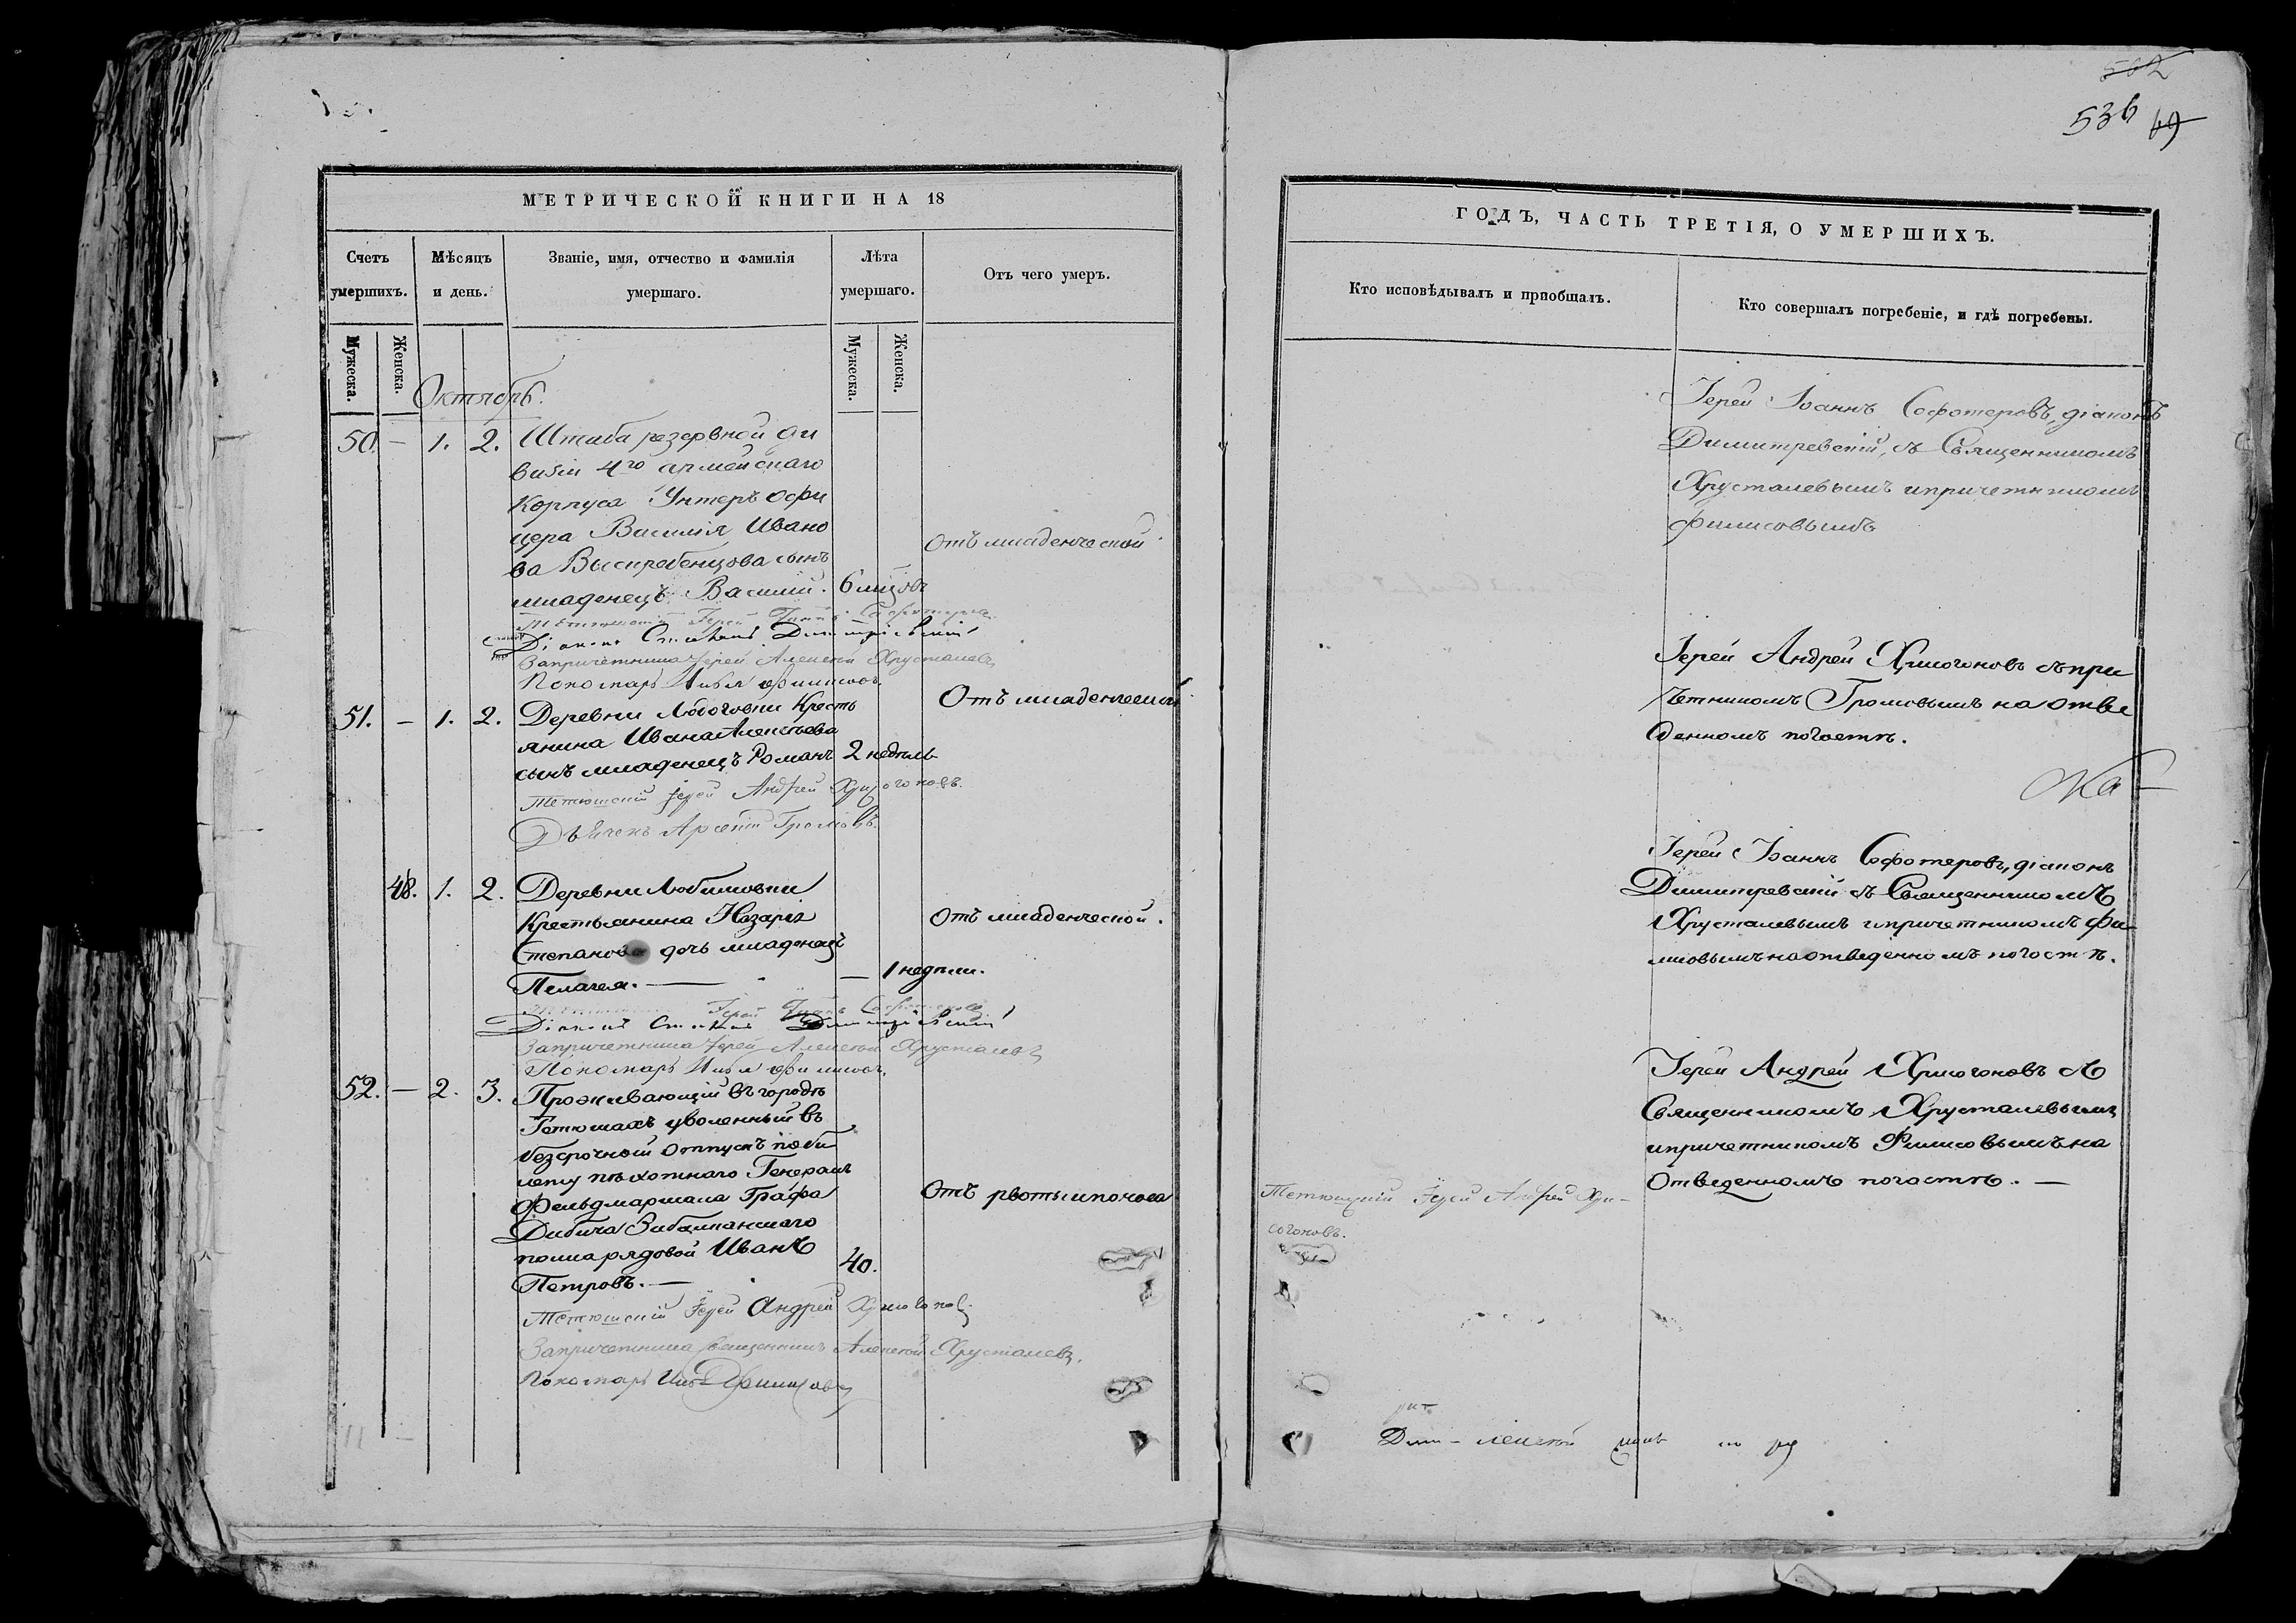 502
536 69
МЕТРИЧЕСКОЙ КНИГИ НА 18
Счетъ умершихъ.
Мѣсяцъ и день.
Званіе, имя, отчество и фамилія умершаго.
Лѣта умершаго.
Отъ чего умеръ.
Мужеска.
Женска.
Мужеска.
Женска.
Октябрь.
50. — 1. 2. Штаба резервной ди
визіи 4го армейскаго
Корпуса Унтеръ офи
цера Василія Ивано
ва сынъ
младенецъ Василій. 6 мцовъ
Отъ младенческой
Іерей Іоаннъ Софотеровъ
Діаконъ Димитріевскій
За причетника Іерей Алексѣй Хрусталевъ
Пономарь Филисовъ.
51. — 1. 2. Деревни Кресть
янина Ивана Алексѣева
сынъ младенецъ Романъ 2 недѣль
Отъ младенческой
Тетюшскій Іерей Андрей Хрисогоновъ.
Дьячекъ Арсеній Громовъ.
48. 1. 2. Деревни Любимовки
Крестьянина Назарія
Степанова дочь младенецъ
Пелагея. — — 1 недѣли.
Отъ младенческой.
Іерей Іоаннъ Софотеровъ
Діаконъ Димитріевскій
За причетника Іерей Алексѣй Хрусталевъ
Пономарь Филисовъ.
52. — 2. 3. Проживающій въ городѣ
Тетюшахъ уволенный въ
безсрочный отпускъ по би
лету пѣхотнаго Генералъ
Фельдмаршала Графа
Дибича Забалканскаго
полка рядовой Иванъ
Петровъ. — 40.
Отъ рвоты и поноса
Тетюшскій Іерей Андрей Хрисогоновъ
За причетника священникъ Алексѣй Хрусталевъ.
Пономарь Филисовъ
ГОДЪ, ЧАСТЬ ТРЕТІЯ, О УМЕРШИХЪ.
Кто исповѣдывалъ и пріобщалъ.
Кто совершалъ погребеніе, и гдѣ погребены.
Іерей Іоаннъ Софотеровъ, діаконъ
Димитревскій, съ Священникомъ
Хрусталевымъ и причетникомъ
Филисовымъ
Іерей Андрей Хрисогоновъ съ при
четникомъ Громовымъ на отве
денномъ погостѣ.
Іерей Іоаннъ Софотеровъ, діаконъ
Димитревскій съ Священникомъ
Хрусталевымъ и причетникомъ Фи-
лисовымъ на отведенномъ погостѣ.
Іерей Андрей Хрисогоновъ съ
Священникомъ Хрусталевымъ
и причетникомъ Филисовымъ на
отведенномъ погостѣ. —
Тетюшскій Іерей Андрей Хри-
согоновъ.